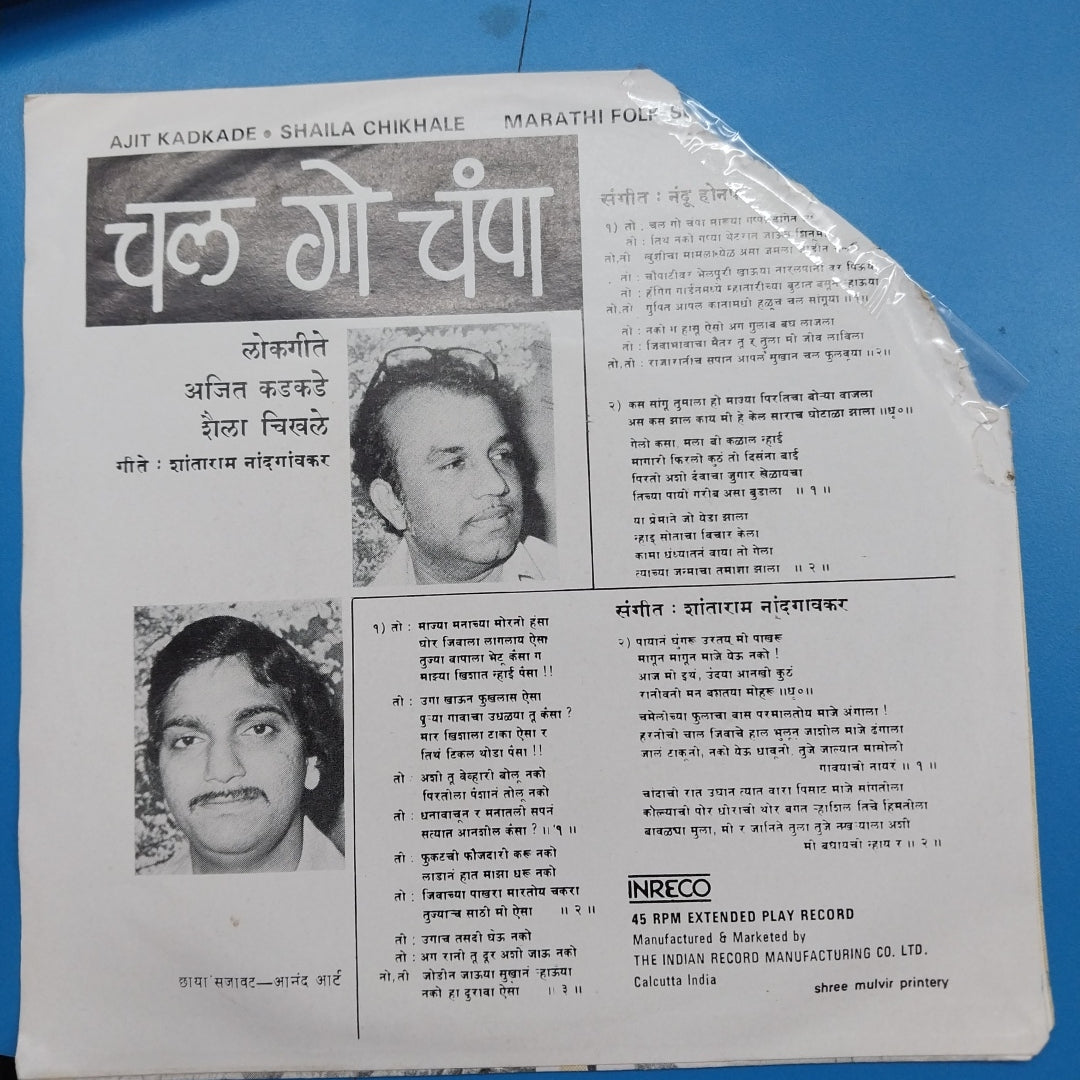 AJIT KADKADE • SHAILA CHIKHALE MARATHI FOLK
चल गो चंपा
लोकगीते
अजित कडकडे
शैला चिखले
गीते : शांताराम नांदगांवकर
संगीत : नंदू
१) तो . चल गो चंपा
तो : तिथ नको गप्पा थेटरात जाऊन
तो,ती खुशीचा मामला
तो : चौपाटीवर भेलपुरी खाऊया नारलपानी वर पिऊया
ती : हँगिंग गार्डनमध्ये म्हातारीच्या बुटात बसून
तो,ती गुपित आपल कानामधी हळूच चल सांगूया ॥१॥
तो : नको ग हासू ऐसी अग गुलाब बघ लाजला
ती : जिवाभावाचा मैतर तू र तुला मी जीव लाविला
तो,ती : राजाराणीच सपान आपलं सुखानं चल फुलवूया ॥२॥
२) कस सांगू तुमाला हो माज्या पिरतिचा बोऱ्या वाजला
अस कस झाल काय मी हे केल साराच घोटाळा झाला ॥धृ०॥
गेलो कसा, मला बी कळाल न्हाई
मागारी फिरलो कुठं ती दिसंना बाई
पिरती अशी दैवाचा जुगार खेळायचा
तिच्या पायी गरीब असा बुडाला ॥ १ ॥
या प्रेमाने जो येडा झाला
न्हाइ सोताचा बिचार केला
कामा धंध्यातनं वाया तो गेला
त्याच्या जन्माचा तमाशा झाला ॥ २ ॥
१) तो : माज्या मनाच्या मोरनी हंसा
घोर जिवाला लागलाय ऐसा
तुज्या बापाला भेटू कंसा ग
माझ्या खिशात न्हाई पैसा !!
ती : उगा खाऊन फुखलास ऐसा
पुऱ्या गावाचा उधळया तू कंसा ?
मार खिशाला टाका ऐसा र
तिथं टिकल थोडा पैसा !!
तो : अशी तू बेव्हारी बोलू नको
पिरतीला पैशानं तोलू नको
ती : धनावाचून र मनातली सपनं
सत्यात आनशील कंसा ? ॥ १ ॥
ती : फुकटची फौजदारी करू नको
लाडानं हात माझा धरू नको
तो : जिवाच्या पाखरा मारतोय चकरा
तुज्याच साठी मी ऐसा ॥ २ ॥
ती : उगाच तसदी घेऊ नको
तो : अग रानी तू दूर अशी जाऊ नको
तो,ती जोडीनं जाऊया सुखानं ऱ्हाऊंया
नको हा दुरावा ऐसा ॥ ३ ॥
संगीत : शांताराम नांदगावकर
२) पायानं घुंगरू उरतय मी पाखरू
मागून मागून माजे येऊ नको !
आज मी हयं, उंदया आनखी कुठं
रानीवनी मन बगतया मोहरू ॥धृ०॥
चमेलीच्या फुलाचा बास परमालतोय माजे अंगाला !
हरनीची चाल जिवाचे हाल भुलून जाशील माजे ढंगाला
जाल टाकूनी, नको येऊ धावूनी, तुजे जाल्यान मासोली
गावयाची नायरं ॥ १ ॥
चांदाची रात उधान त्यात वारा पिसाट माजे सांगतीला
कोल्याची पोर धीराची थोर बगत ऱ्हाशिल तिचे हिमतीला
बावळया मुला, मी र जानिते तुला तुजे नखऱ्याला अशी
मी बधायची न्हाय र ॥ २ ॥
INRECO
45 RPM EXTENDED PLAY RECORD
Manufactured & Marketed by
THE INDIAN RECORD MANUFACTURING CO. LTD.
Calcutta India
shree mulvir printery
छाया सजावट—आनंद आर्ट